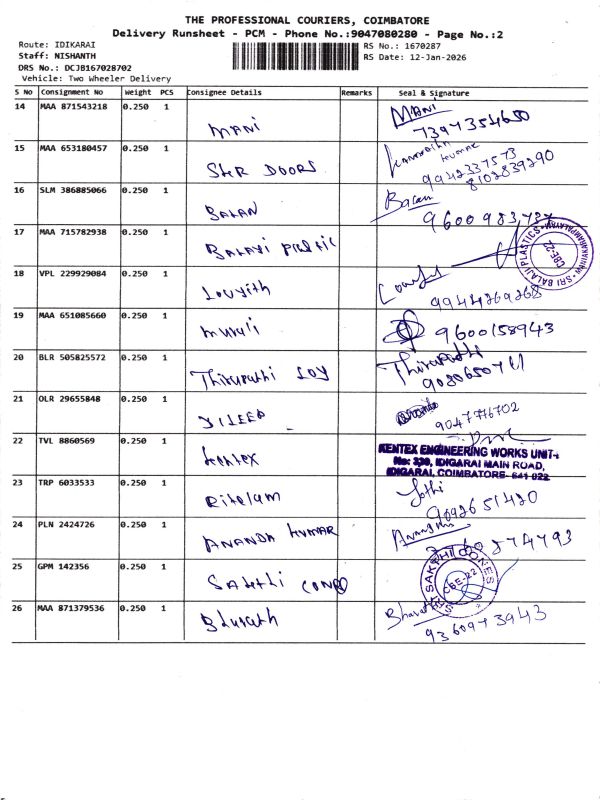 THE PROFESSIONAL COURIERS, COIMBATORE
Delivery Runsheet - PCM - Phone No.:9047080280 - Page No.:2
Route: IDIKARAI
RS No.: 1670287
Staff: NISHANTH
RS Date: 12-Jan-2026
DRS No.: DCJB167028702
Vehicle: Two Wheeler Delivery
S No Consignment No Weight PCS Consignee Details Remarks Seal & Signature
14 MAA 871543218 0.250 1 MANI MANI
7397354650
15 MAA 653180457 0.250 1 STER DOORS
9942337573
8102839290
16 SLM 386885066 0.250 1 BALAN Balan
9600983737
17 MAA 715782938 0.250 1 BALAYI
SRI BALAJI PLASTICS CBE-22
18 VPL 229929084 0.250 1 Louyith
9944269268
19 MAA 651085660 0.250 1 murali 9600158943
20 BLR 505825572 0.250 1 Thirupathi SOY Thirupathi
9080650761
21 OLR 29655848 0.250 1 DILEEP
9047776702
22 TVL 8860569 0.250 1 kentex
KENTEX ENGINEERING WORKS UNIT-1
No: 339, IDIGARAI MAIN ROAD,
IDIGARAI, COIMBATORE- 641 022
23 TRP 6033533 0.250 1 Jothi
9092651420
24 PLN 2424726 0.250 1 ANANDA KUMAR
874793
25 GPM 142356 0.250 1 Sakthi CONES
SRI SAKTHI CONES CBE-22
26 MAA 871379536 0.250 1 Bharath Bharath
9360973943